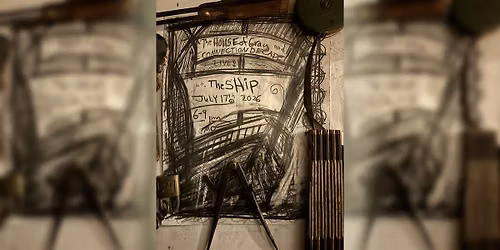 The HOUSE of Gray and
CONNECTION DECADE
LIVE
at The SHIP
JULY 17th 2026
6-9 pm